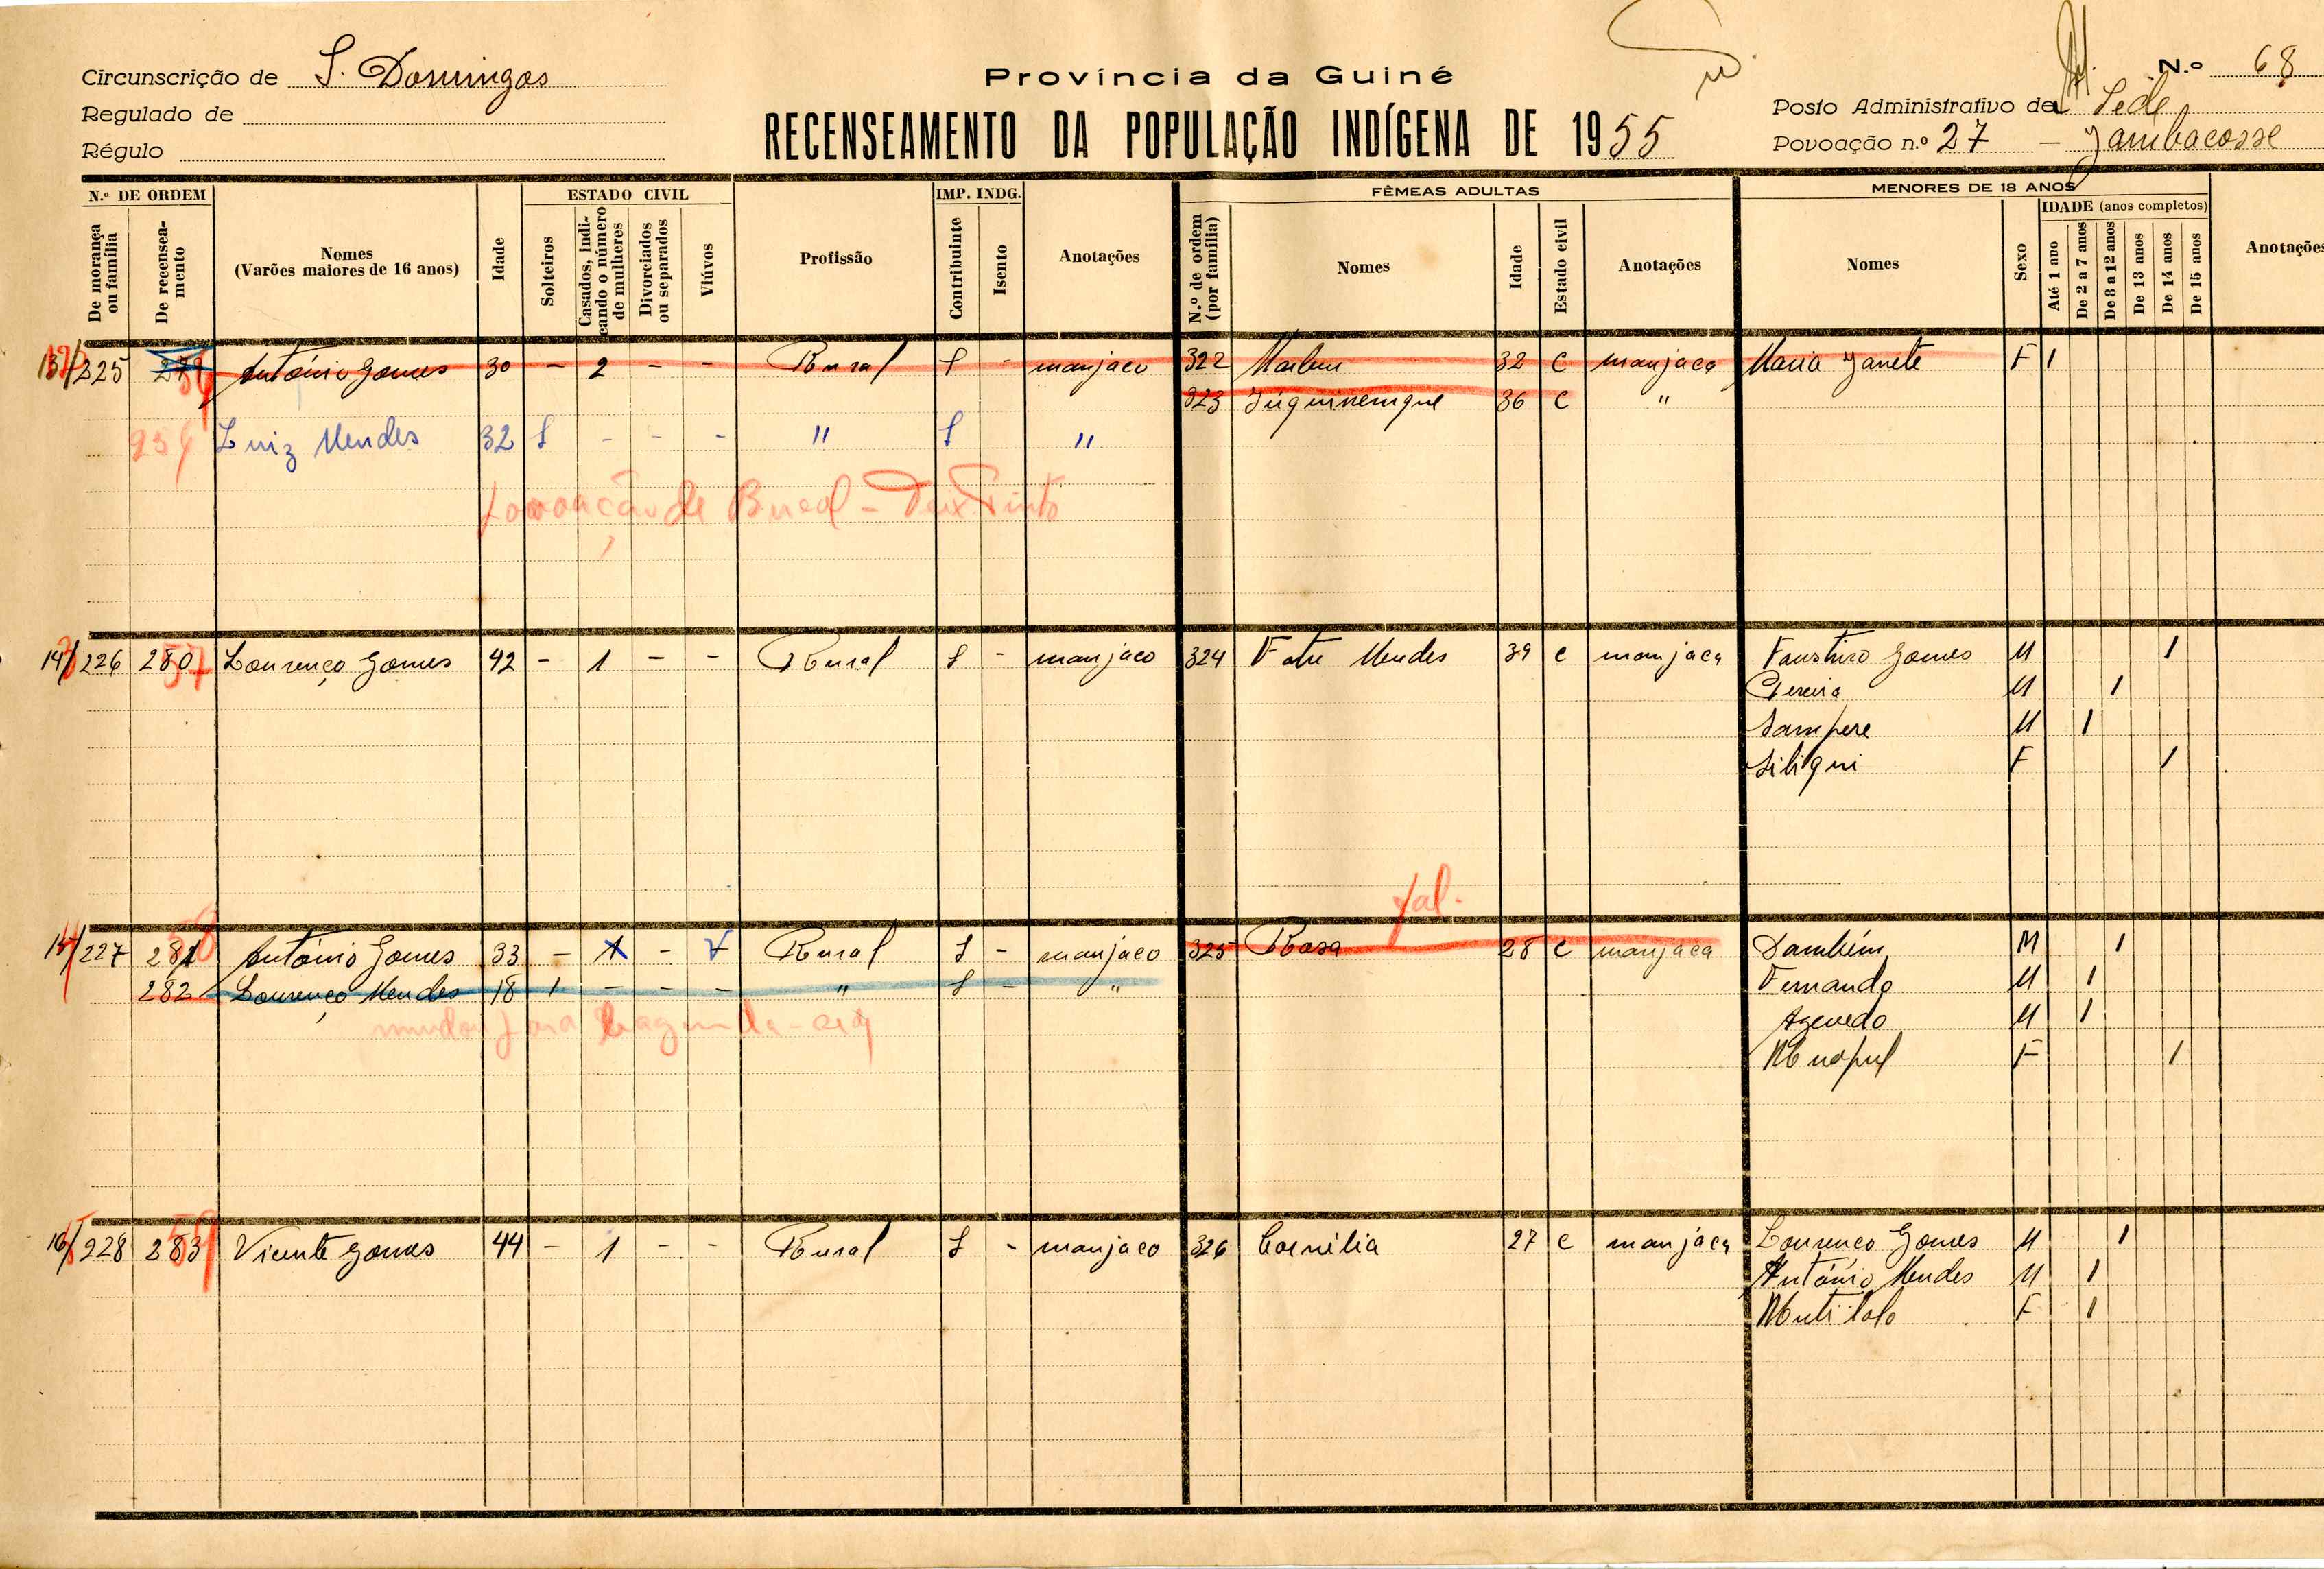 Circunscrição de S. Domingos
Regulado de
Régulo
Província da Guiné
RECENSEAMENTO DA POPULAÇÃO INDÍGENA DE 1955
N.º 68
Posto Administrativo de Sede
Povoação n.º 27 — Jambacosse
N.º DE ORDEM
De morança ou família
De recenseamento
Nomes
(Varões maiores de 16 anos)
Idade
ESTADO CIVIL
Solteiros
Casados, indicando o número de mulheres
Divorciados ou separados
Viúvos
Profissão
IMP. INDG.
Contribuinte
Isento
Anotações
FÊMEAS ADULTAS
N.º de ordem (por família)
Nomes
Idade
Estado civil
Anotações
MENORES DE 18 ANOS
Nomes
Sexo
IDADE (anos completos)
Até 1 ano
De 2 a 7 anos
De 8 a 12 anos
De 13 anos
De 14 anos
De 15 anos
Anotações
13/225 279 António Gomes 30 - 2 - - Rural 1 - manjaco 322 32 C manjaca Maria Janete F 1
323 36 C "
Luiz Mendes 32 1 - - - " 1 "
Povoação de - Teix. Pinto
14/226 280 57 Lourenço Gomes 42 - 1 - - Rural 1 - manjaco 324 Mendes 39 C manjaca Faustino Gomes M 1
Pereira M 1
Sampere M 1
Siliqui F 1
fal.
15/227 281 58 António Gomes 33 - 1 - 1 Rural 1 - manjaco 325 Rosa 28 C manjaca Dambém M 1
282 Lourenço Mendes 18 1 - - - " 1 - " Fernando M 1
mudou para
Azevedo M 1
F 1
16/228 283 59 Vicente Gomes 44 - 1 - - Rural 1 - manjaco 326 Cornélia 27 C manjaca Lourenço Gomes M 1
António Mendes M 1
F 1